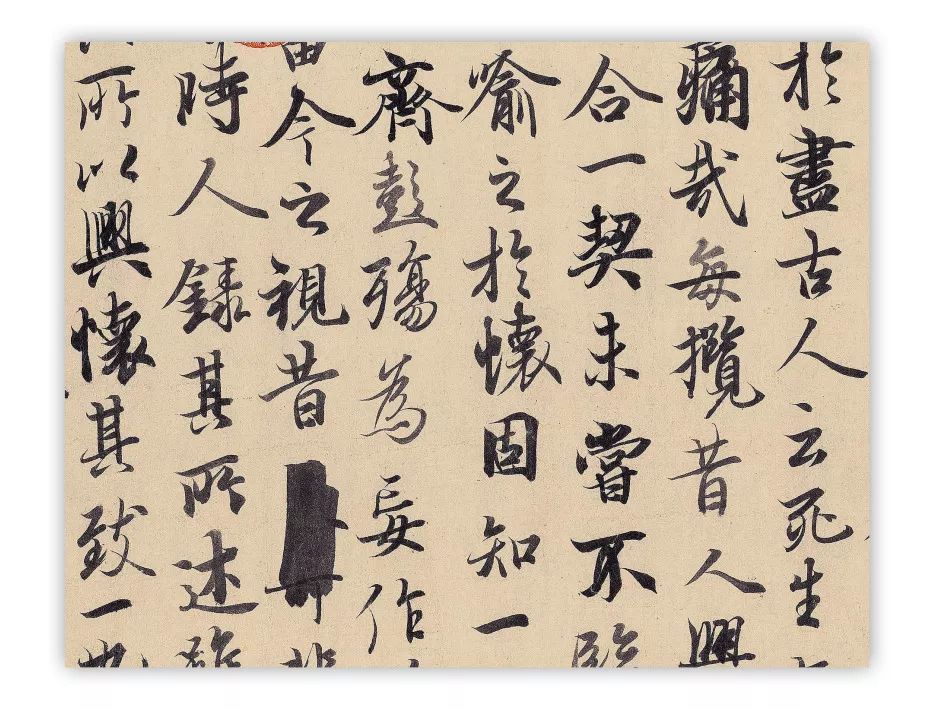 於盡古人云死生
痛哉每攬昔人興
合一契未嘗不臨
喻之於懷固知一
齊彭殤為妄作
由今之視昔
時人錄其所述雖
所以興懷其致一也